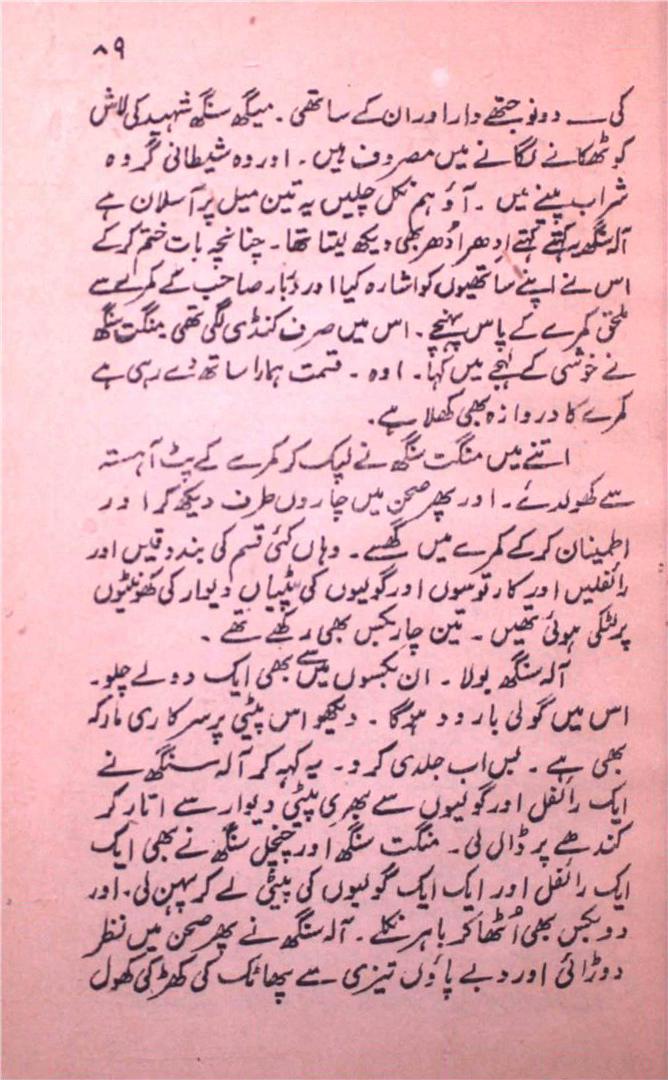 ۸۹
کی ــــ دونو جتھے دار اور ان کے ساتھی۔ میگھ سنگھ شہید کی لاش
کو ٹھکانے لگانے میں مصروف ہیں۔ اور وہ شیطانی گروہ
شراب پینے میں۔ آؤ ہم نکل چلیں یہ تین میل پر آسلان ہے
آلہ سنگھ یہ کہتے کہتے اِدھر اُدھر بھی دیکھ لیتا تھا۔ چنانچہ بات ختم کر کے
اس نے اپنے ساتھیوں کو اشارہ کیا اور دربار صاحب کے کمرے سے
ملحق کمرے کے پاس پہنچے۔ اس میں صرف کنڈی لگی تھی۔ منگت سنگھ
نے خوشی کے لہجے میں کہا۔ اوہ۔ قسمت ہمارا ساتھ دے رہی ہے
کمرے کا دروازہ بھی کھلا ہے۔
اتنے میں منگت سنگھ نے لپک کر کمرے کے پٹ آہستہ
سے کھولدئے۔ اور پھر صحن میں چاروں طرف دیکھ کر اور
اطمینان کر کے کمرے میں گھسے۔ وہاں کئی قسم کی بندوقیں اور
رائفلیں اور کارتوسوں اور گولیوں کی پٹیاں دیوار کی کھونٹیوں
پر لٹکی ہوئی تھیں۔ تین چار بکس بھی رکھے تھے۔
آلہ سنگھ بولا۔ ان بکسوں میں سے بھی ایک دو لے چلو۔
اس میں گولی بارود ہوگا۔ دیکھو اس پیٹی پر سرکاری مارکہ
بھی ہے۔ بس اب جلدی کرو۔ یہ کہہ کر آلہ سنگھ نے
ایک رائفل اور گولیوں سے بھری پیٹی دیوار سے اتار کر
کندھے پر ڈال لی۔ منگت سنگھ اور چنچل سنگھ نے بھی ایک
ایک رائفل اور ایک ایک گولیوں کی پیٹی لے کر پہن لی۔ اور
دو بکس بھی اُٹھا کر باہر نکلے۔ آلہ سنگھ نے پھر صحن میں نظر
دوڑائی اور دبے پاؤں تیزی سے پھاٹک کی کھڑکی کھول